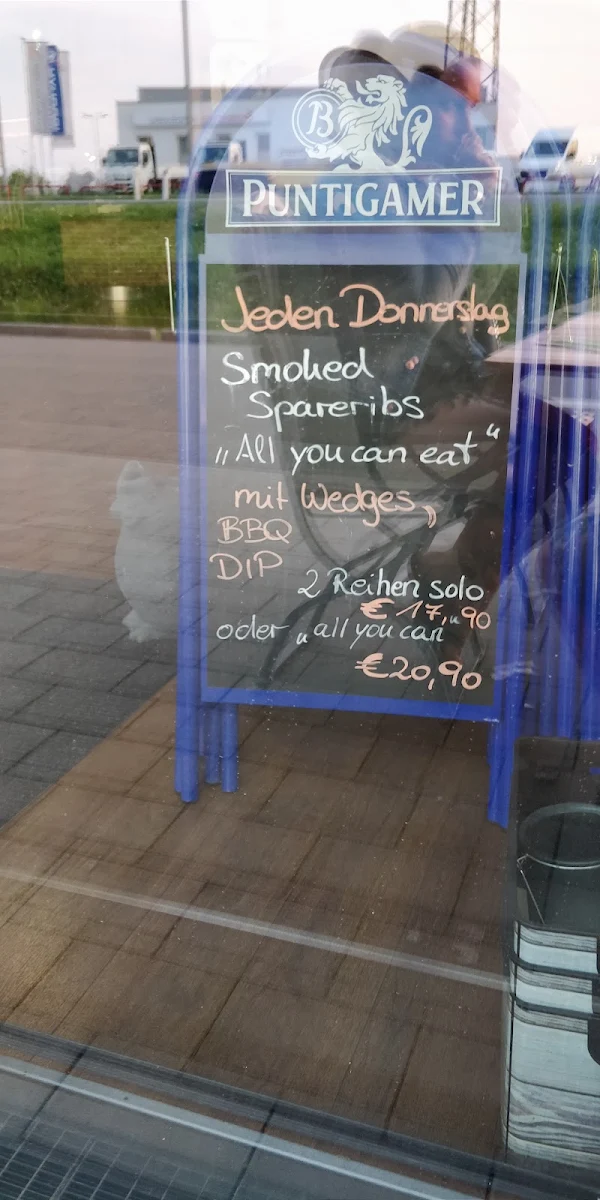 B
PUNTIGAMER
Jeden Donnerstag
Smoked
Spareribs
„All you can eat“
mit Wedges,
BBQ
DIP
2 Reihen solo
€ 17,90
oder „all you can“
€20,90